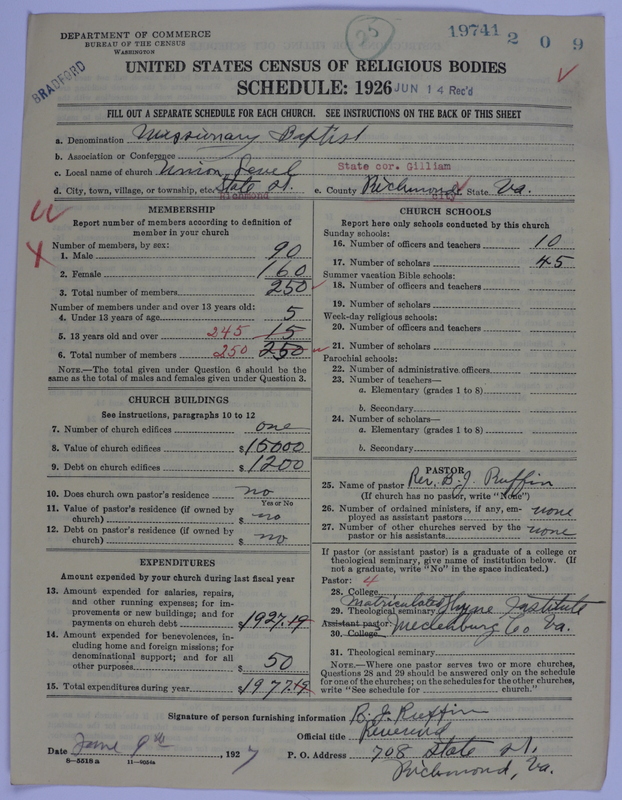 DEPARTMENT OF COMMERCE
BUREAU OF THE CENSUS
WASHINGTON
25
19741 209
BRADFORD
UNITED STATES CENSUS OF RELIGIOUS BODIES
SCHEDULE: 1926 JUN 14 Rec'd
FILL OUT A SEPARATE SCHEDULE FOR EACH CHURCH. SEE INSTRUCTIONS ON THE BACK OF THIS SHEET
a. Denomination Missionary Baptist
b. Association or Conference
c. Local name of church Union Level State cor. Gilliam
d. City, town, village, or township, etc. State st. Richmond e. County Richmond City State Va.
MEMBERSHIP
Report number of members according to definition of
member in your church
Number of members, by sex:
1. Male 90
2. Female 160
3. Total number of members 250
Number of members under and over 13 years old:
4. Under 13 years of age 5
5. 13 years old and over 245 15
6. Total number of members 250 250
NOTE.—The total given under Question 6 should be the
same as the total of males and females given under Question 3.
CHURCH BUILDINGS
See instructions, paragraphs 10 to 12
7. Number of church edifices one
8. Value of church edifices $15000
9. Debt on church edifices $1200
10. Does church own pastor's residence no
Yes or No
11. Value of pastor's residence (if owned by
church) $ no
12. Debt on pastor's residence (if owned by
church) $ no
EXPENDITURES
Amount expended by your church during last fiscal year
13. Amount expended for salaries, repairs,
and other running expenses; for im-
provements or new buildings; and for
payments on church debt $1927.19
14. Amount expended for benevolences, in-
cluding home and foreign missions; for
denominational support; and for all
other purposes $ 50
15. Total expenditures during year $1977.19
CHURCH SCHOOLS
Report here only schools conducted by this church
Sunday schools:
16. Number of officers and teachers 10
17. Number of scholars 45
Summer vacation Bible schools:
18. Number of officers and teachers
19. Number of scholars
Week-day religious schools:
20. Number of officers and teachers
21. Number of scholars
Parochial schools:
22. Number of administrative officers
23. Number of teachers—
a. Elementary (grades 1 to 8)
b. Secondary
24. Number of scholars—
a. Elementary (grades 1 to 8)
b. Secondary
PASTOR
25. Name of pastor Rev. B. J. Ruffin
(If church has no pastor, write "None")
26. Number of ordained ministers, if any, em-
ployed as assistant pastors none
27. Number of other churches served by the
pastor or his assistants none
If pastor (or assistant pastor) is a graduate of a college or
theological seminary, give name of institution below. (If
not a graduate, write "No" in the space indicated.)
Pastor: 4
28. College
29. Theological seminary Matriculated Institute
Assistant pastor: Mecklenburg Co Va.
30. College
31. Theological seminary
NOTE.—Where one pastor serves two or more churches,
Questions 28 and 29 should be answered only on the schedule
for one of the churches; on the schedules for the other churches,
write "See schedule for church."
Signature of person furnishing information B. J. Ruffin
Official title Reverend
Date June 9th, 1927 P. O. Address 708 State st.
Richmond, Va.
8—5518 a 11—9024a